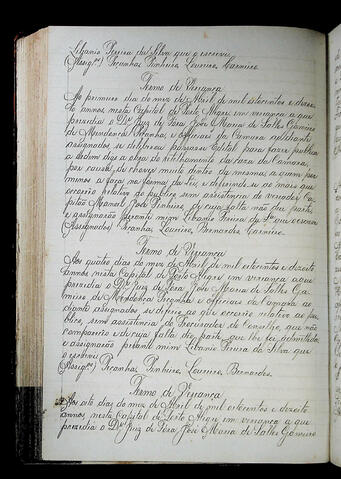 Libanio Pereira da Silva que o escrevi
(Assig.ᵒˢ) Peçanha Pinheiro, Loureiro, Carneiro
Termo de Vereança
Ao primeiro dia do mez de Abril de mil oitocentos e dezoi-
to annos nesta Capital de Porto Alegre em vereança a que
presidia o Dᵒʳ Juiz de Fora José Maria de Salles Gameiro
de Mendonça Peçanha e officiaes da Camara adiante
assignados, se deliberou passasse edital para fazer publico
a todos que a obra do da Casa da Camara
por causa de chuva muita dentro da mesma; a quem por
menos a faça na forma da Lei; e deferindo-se ao mais que
occorreo relativo do publico sem assistencia do vereador Ca-
pitão Manoel José Pinheiro, de cuja falta não deu parte,
e assignarão perante mim Libanio Pereira da Sᵃ que o escrevi
(Assignados) Peçanha, Loureiro, Bernardes, Carneiro.
Termo de Vereança
Aos quatro dias do mez de Abril de mil oitocentos e dezoito
annos nesta Capital de Porto Alegre em vereança a que
presidia o Dᵒʳ Juiz de Fora José Maria de Salles Ga-
meiro de Mendonça Peçanha e officiaes da Camara ao
diante assignados se deferio ao que occorreo relativo ao pu-
blico, sem assistencia do Procurador do Conselho, que não
compareceo e de cuja falta deu parte que lhe foi admittida
e assignarão perante mim Libanio Pereira da Silva que
o escrevi
(Assig.ᵒˢ) Peçanha, Pinheiro, Loureiro, Bernardes.
Termo de Vereança
Aos oito dias do mez de Abril de mil oitocentos e dezoito
annos, nesta Capital de Porto Alegre em vereança a que
presidia o Dᵒʳ Juiz de Fora José Maria de Salles Gameiro